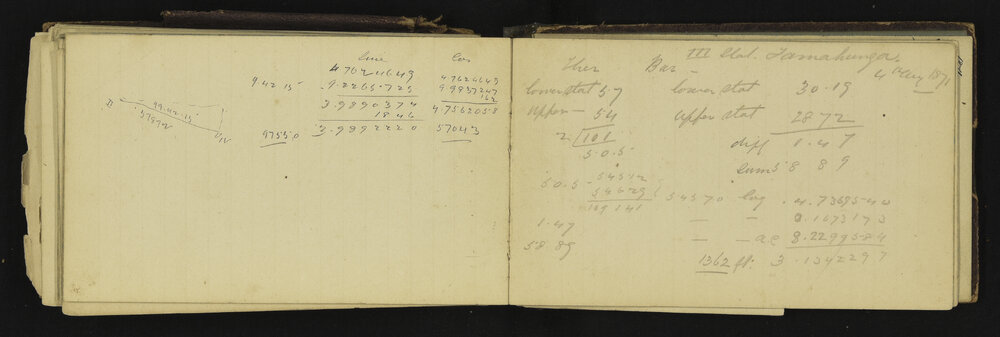 Sine Cos
9.42.15 4.7624649 4.7624649
9.2265725 9.9937247
162
3.9890374 4.7562058
1846
9755.0 3.9892220 57043
II 99.42.15
57892
III Stat. Tamahunga
4th Aug 1871
Ther Bar -
lower stat 57 lower stat 30.19
upper - 54 upper stat 2872
2 101 diff 1.47
50.5 sum 58 89
50.5 - 54512
54629 54570 log 4.7369540
109141
1.47 — - 0.1673173
58.89 — - ac 8.2299584
1362 ft: 3.1342297